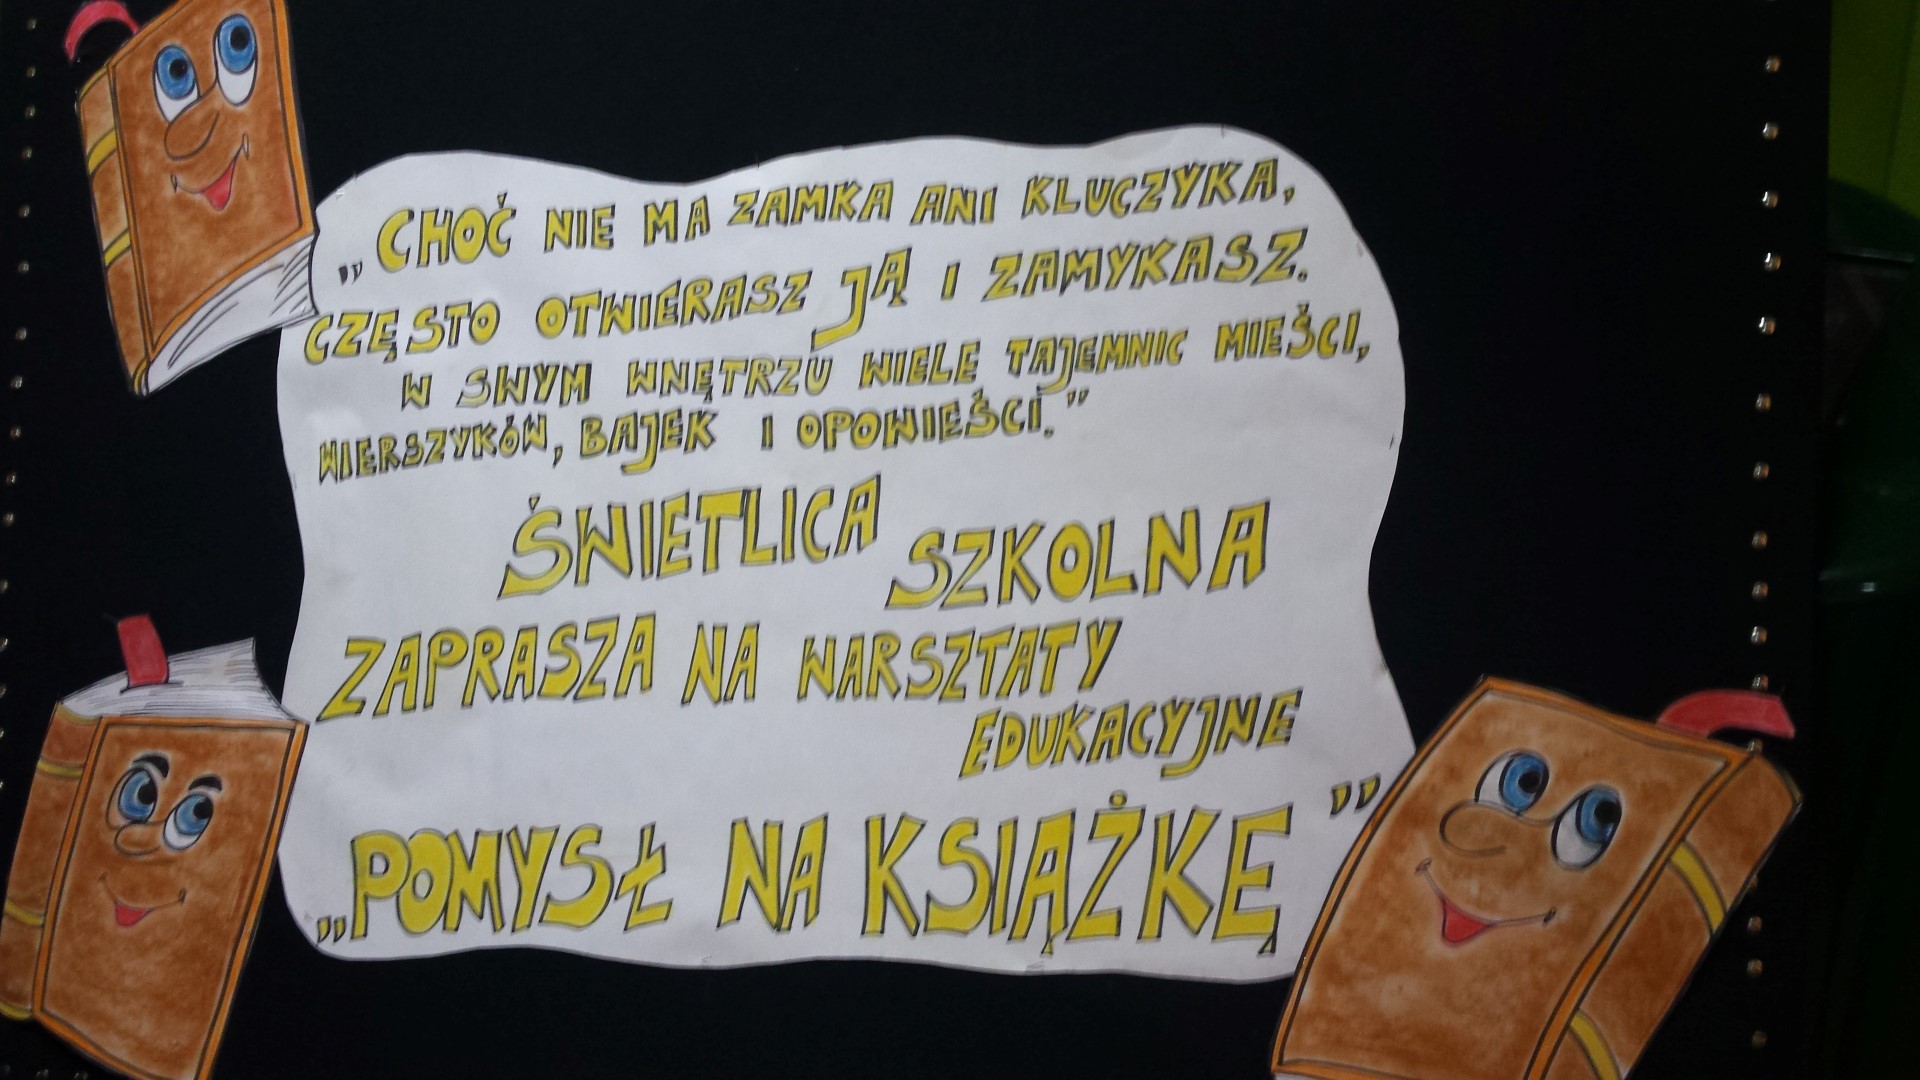 „CHOĆ NIE MA ZAMKA ANI KLUCZYKA,
CZĘSTO OTWIERASZ JĄ I ZAMYKASZ.
W SWYM WNĘTRZU WIELE TAJEMNIC MIEŚCI,
WIERSZYKÓW, BAJEK I OPOWIEŚCI.”
ŚWIETLICA SZKOLNA
ZAPRASZA NA WARSZTATY
EDUKACYJNE
„POMYSŁ NA KSIĄŻKĘ”